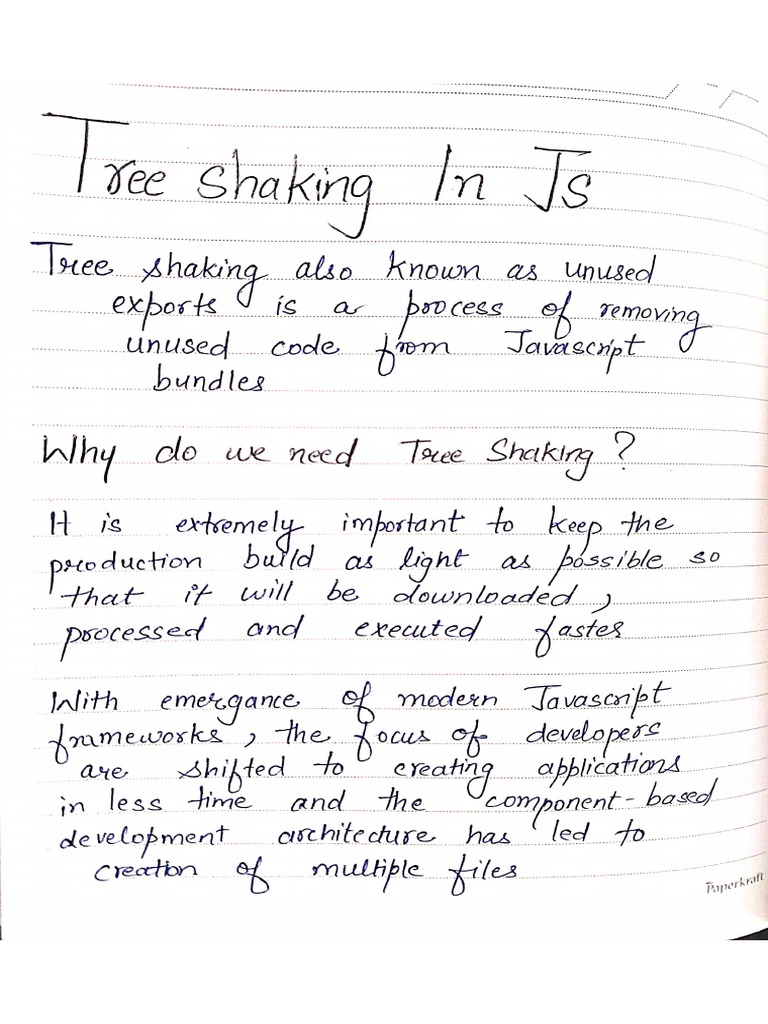 Tree shaking In Js
Tree shaking also known as unused
exports is a process of removing
unused code from Javascript
bundles
Why do we need Tree Shaking?
It is extremely important to keep the
production build as light as possible so
that it will be downloaded,
processed and executed faster
With emergance of modern Javascript
frameworks, the focus of developers
are shifted to creating applications
in less time and the component-based
development architecture has led to
creation of multiple files
Paperkraft